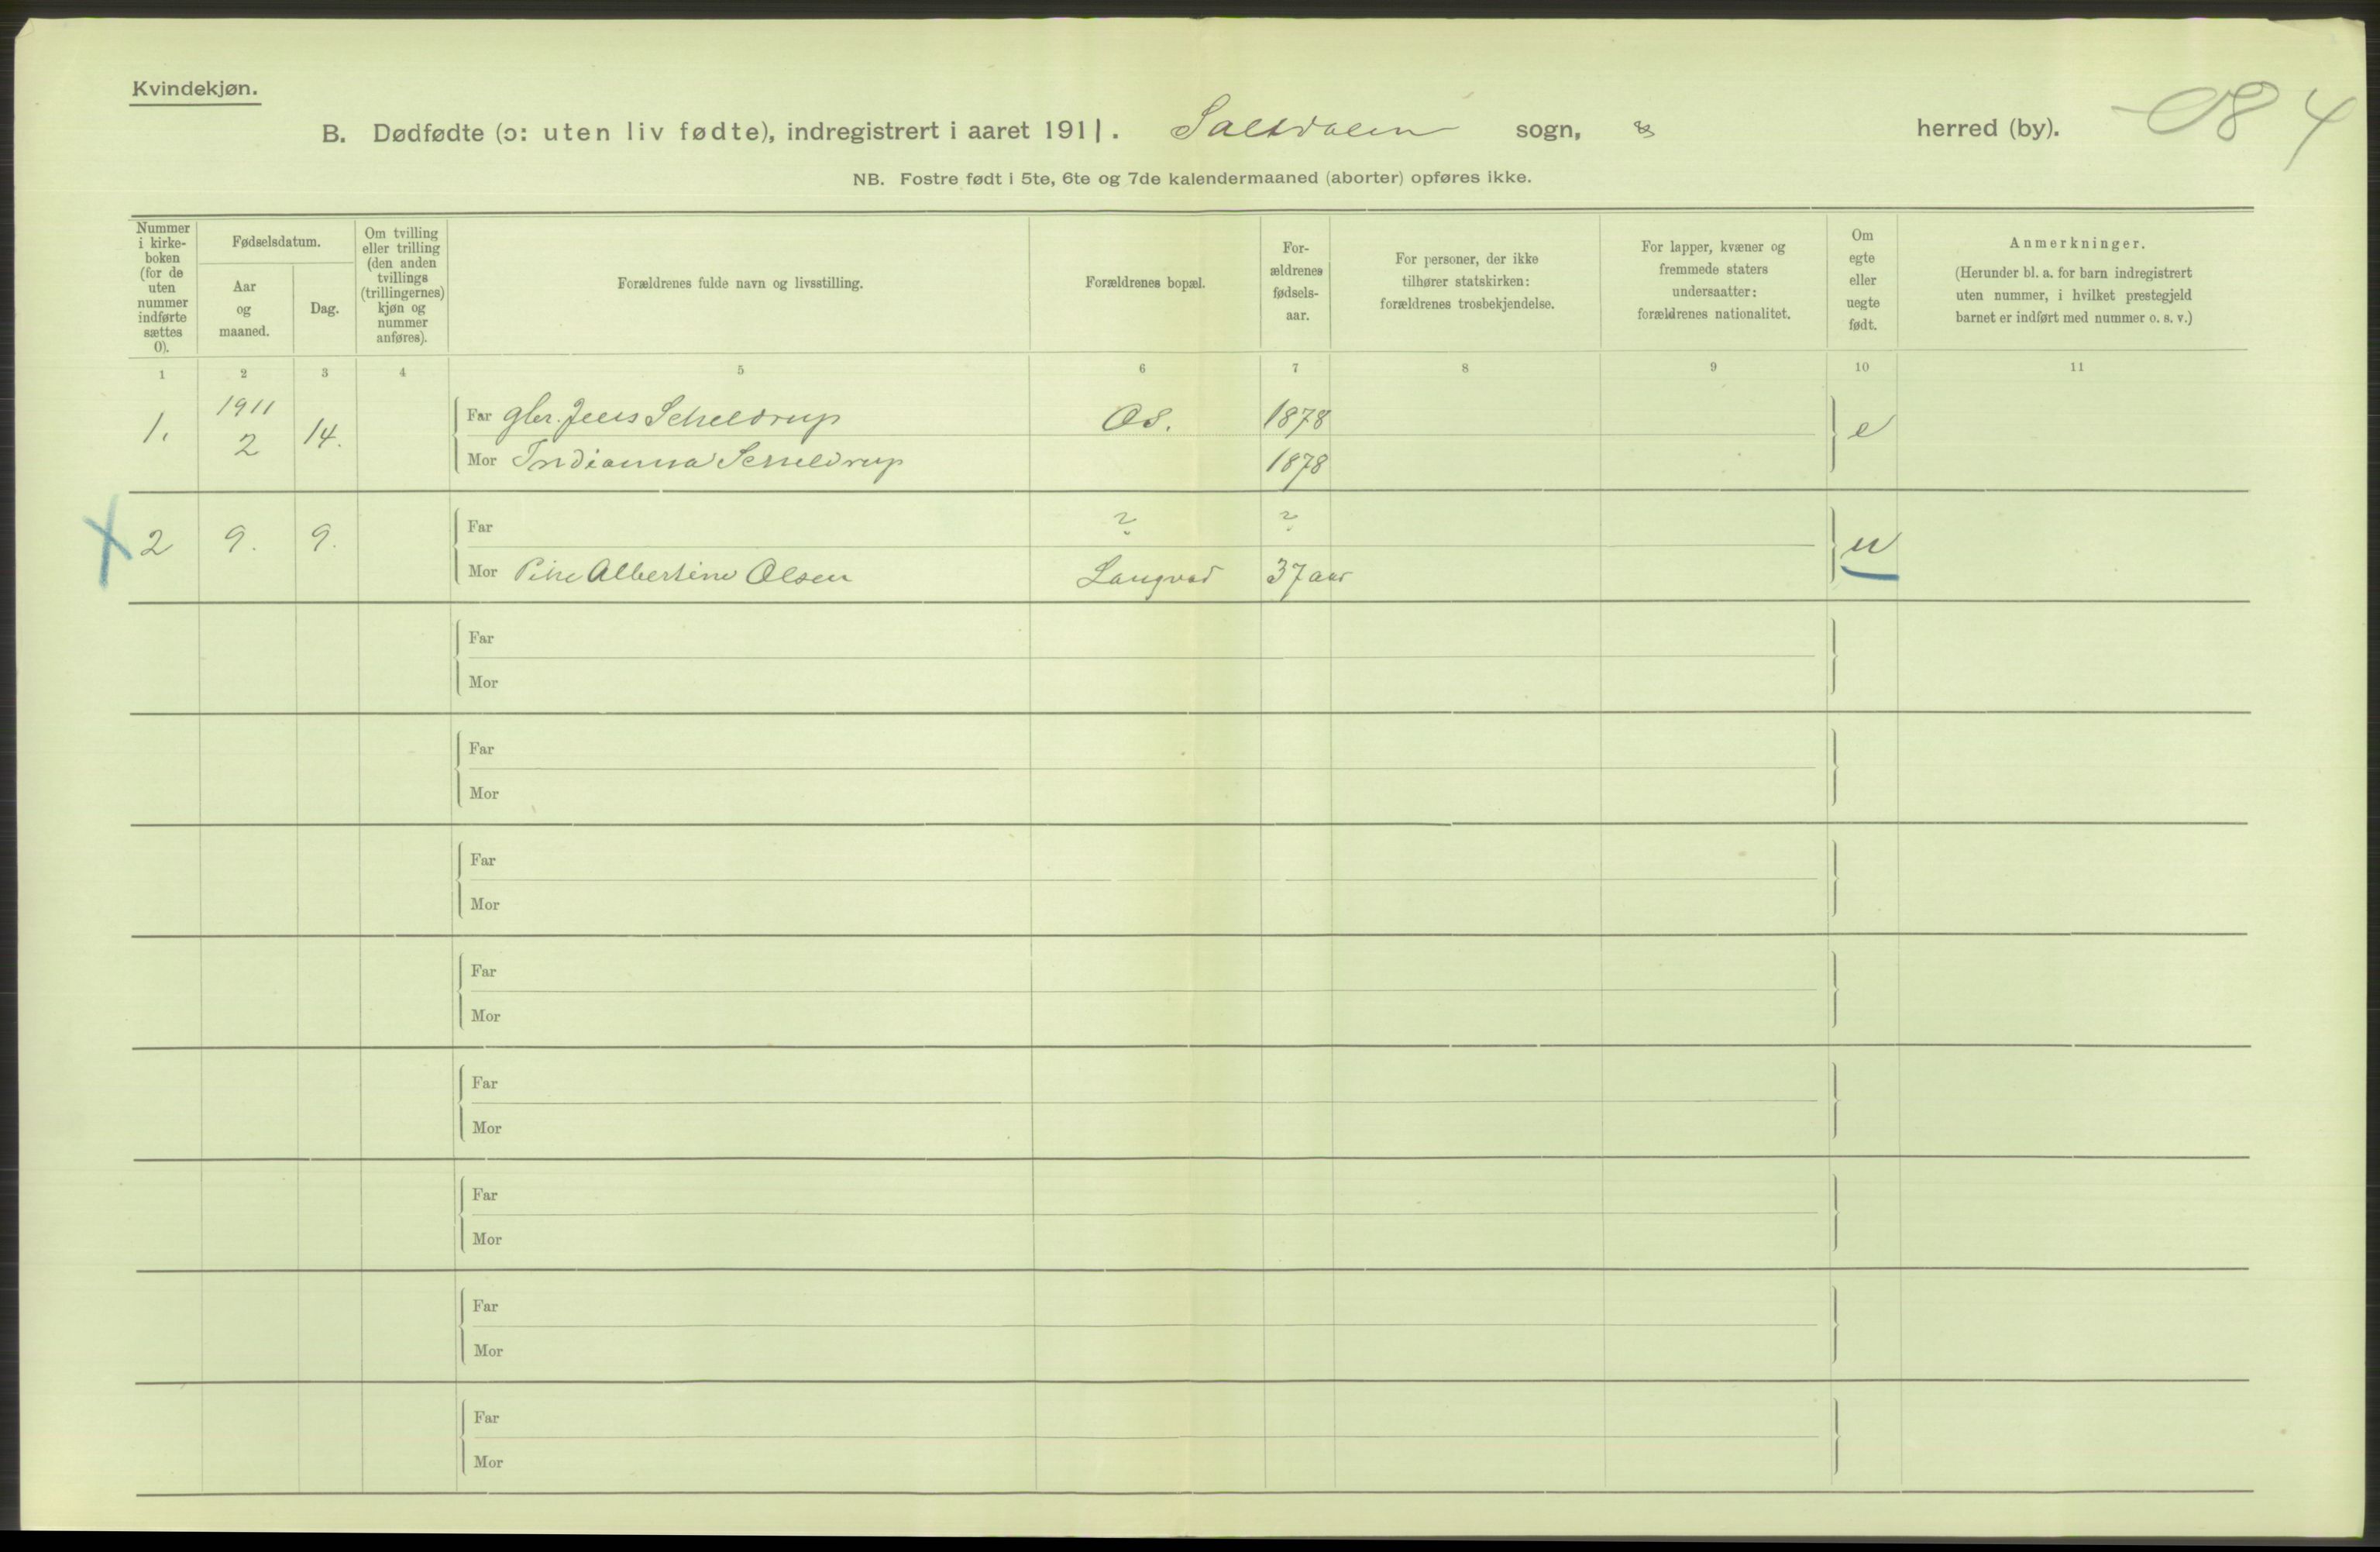 Kvindekjøn.
B. Dødfødte (ɔ: uten liv fødte), indregistrert i aaret 1911. Saltdalen sogn, herred (by).
NB. Fostre født i 5te, 6te og 7de kalendermaaned (aborter) opføres ikke.
Nummer
i kirke-
boken
(for de
uten
nummer
indførte
sættes
0).
Fødselsdatum.
Aar
og
maaned.
Dag.
Om tvilling
eller trilling
(den anden
tvillings
(trillingernes)
kjøn og
nummer
anføres).
Forældrenes fulde navn og livsstilling.
Forældrenes bopæl.
For-
ældrenes
fødsels-
aar.
For personer, der ikke
tilhører statskirken:
forældrenes trosbekjendelse.
For lapper, kvæner og
fremmede staters
undersaatter:
forældrenes nationalitet.
Om
egte
eller
uegte
født.
Anmerkninger.
(Herunder bl. a. for barn indregistrert
uten nummer, i hvilket prestegjeld
barnet er indført med nummer o. s. v.)
1 2 3 4 5 6 7 8 9 10 11
1. 1911 2 14. Far gbr. Jens Scheldrup Os. 1878 e
Mor Indianna Scheldrup 1878
2 9. 9. Far ? ? u
Mor Pike Albertine Olsen Langvad 37 aar
Far
Mor
Far
Mor
Far
Mor
Far
Mor
Far
Mor
Far
Mor
Far
Mor
Far
Mor